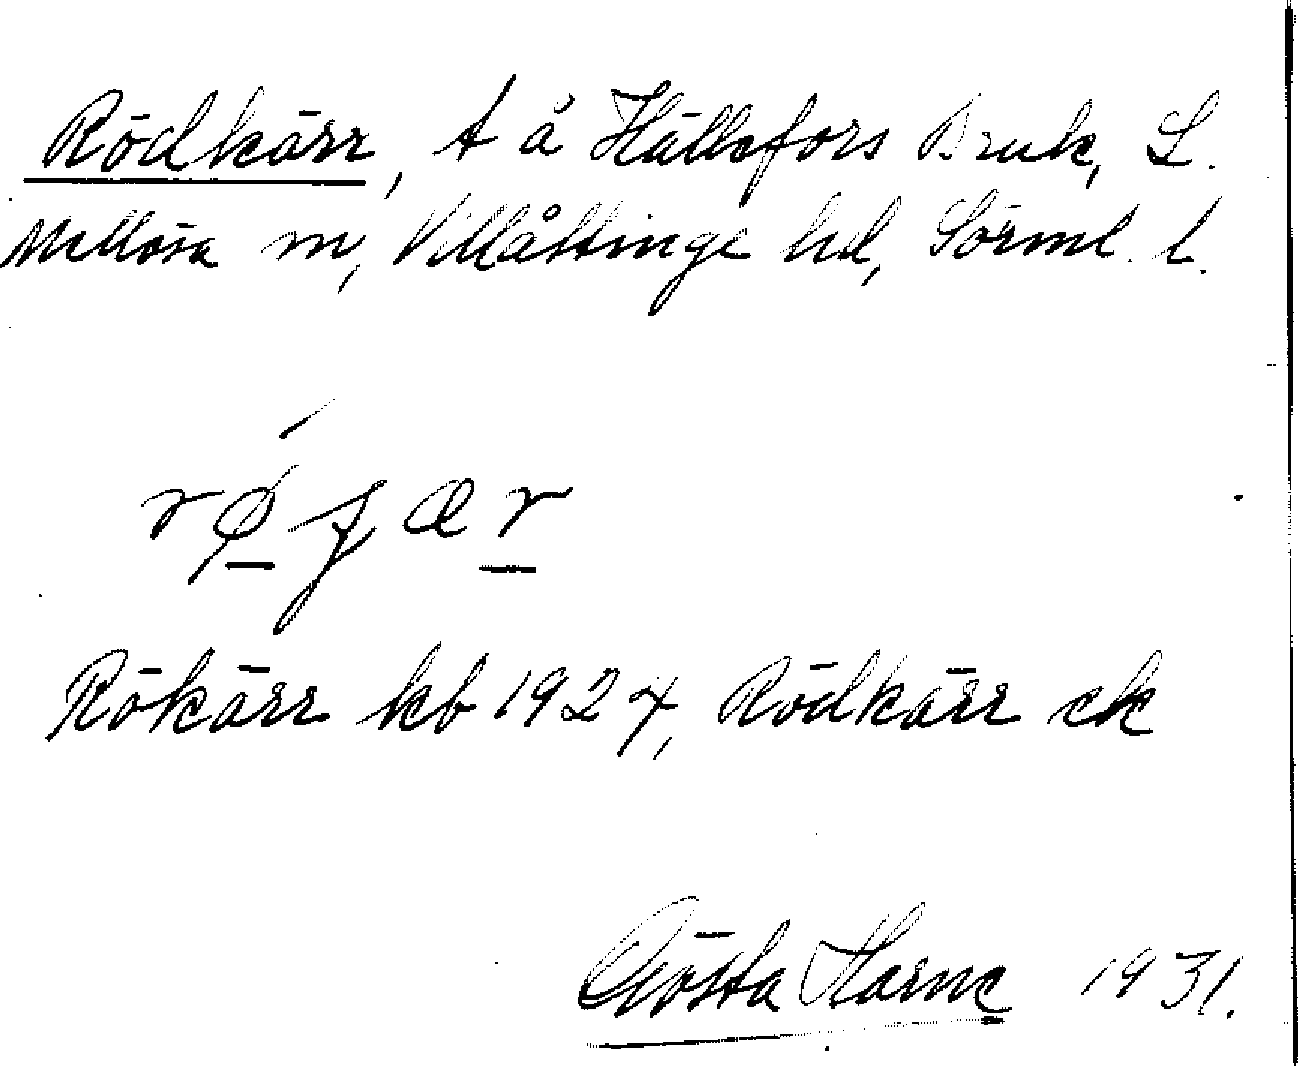 Rödkärr, t å Hällefors Bruk, L.
Mellösa sn, Villåttinge hd, Sörml. l.
Rökärr kb 1924, Rödkärr ek
Gösta Harne 1931.